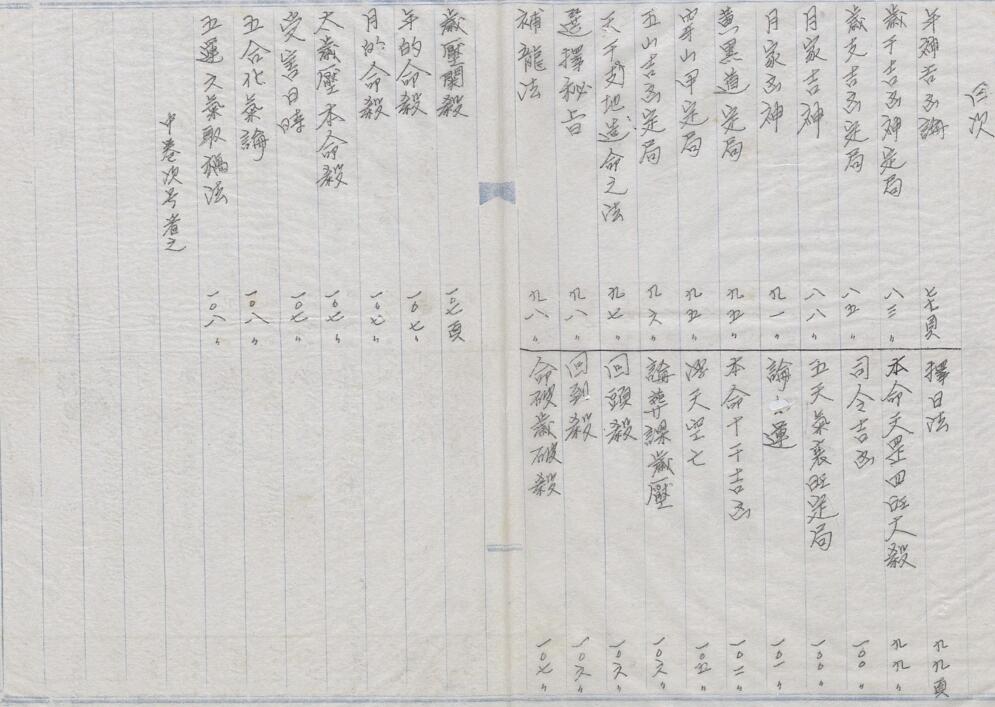 仝次
年神吉凶論 七七頁
歲干吉凶神定局 八三〃
歲支吉凶定局 八五〃
月家吉神 八八〃
月家凶神 九一〃
黃黑道定局 九五〃
穿山甲定局 九五〃
五山吉凶定局 九六〃
天干地造命之法 九七〃
選擇秘旨 九八〃
補龍法 九八〃
擇日法 九九頁
本命天罡四旺大殺 九九〃
司令吉凶 一〇〇〃
五天氣衰旺定局 一〇〇〃
論運 一〇一〃
本命十干吉凶 一〇二〃
天空亡 一〇五〃
論葬課歲壓 一〇六〃
回頭殺 一〇六〃
回到殺 一〇六〃
命破歲破殺 一〇七〃
歲壓關殺 一〇七頁
年的命殺 一〇七〃
月的命殺 一〇七〃
大歲壓本命殺 一〇七〃
受害日時 一〇七〃
五合化氣論 一〇八〃
五運六氣取稱法 一〇八〃
中卷次另者之